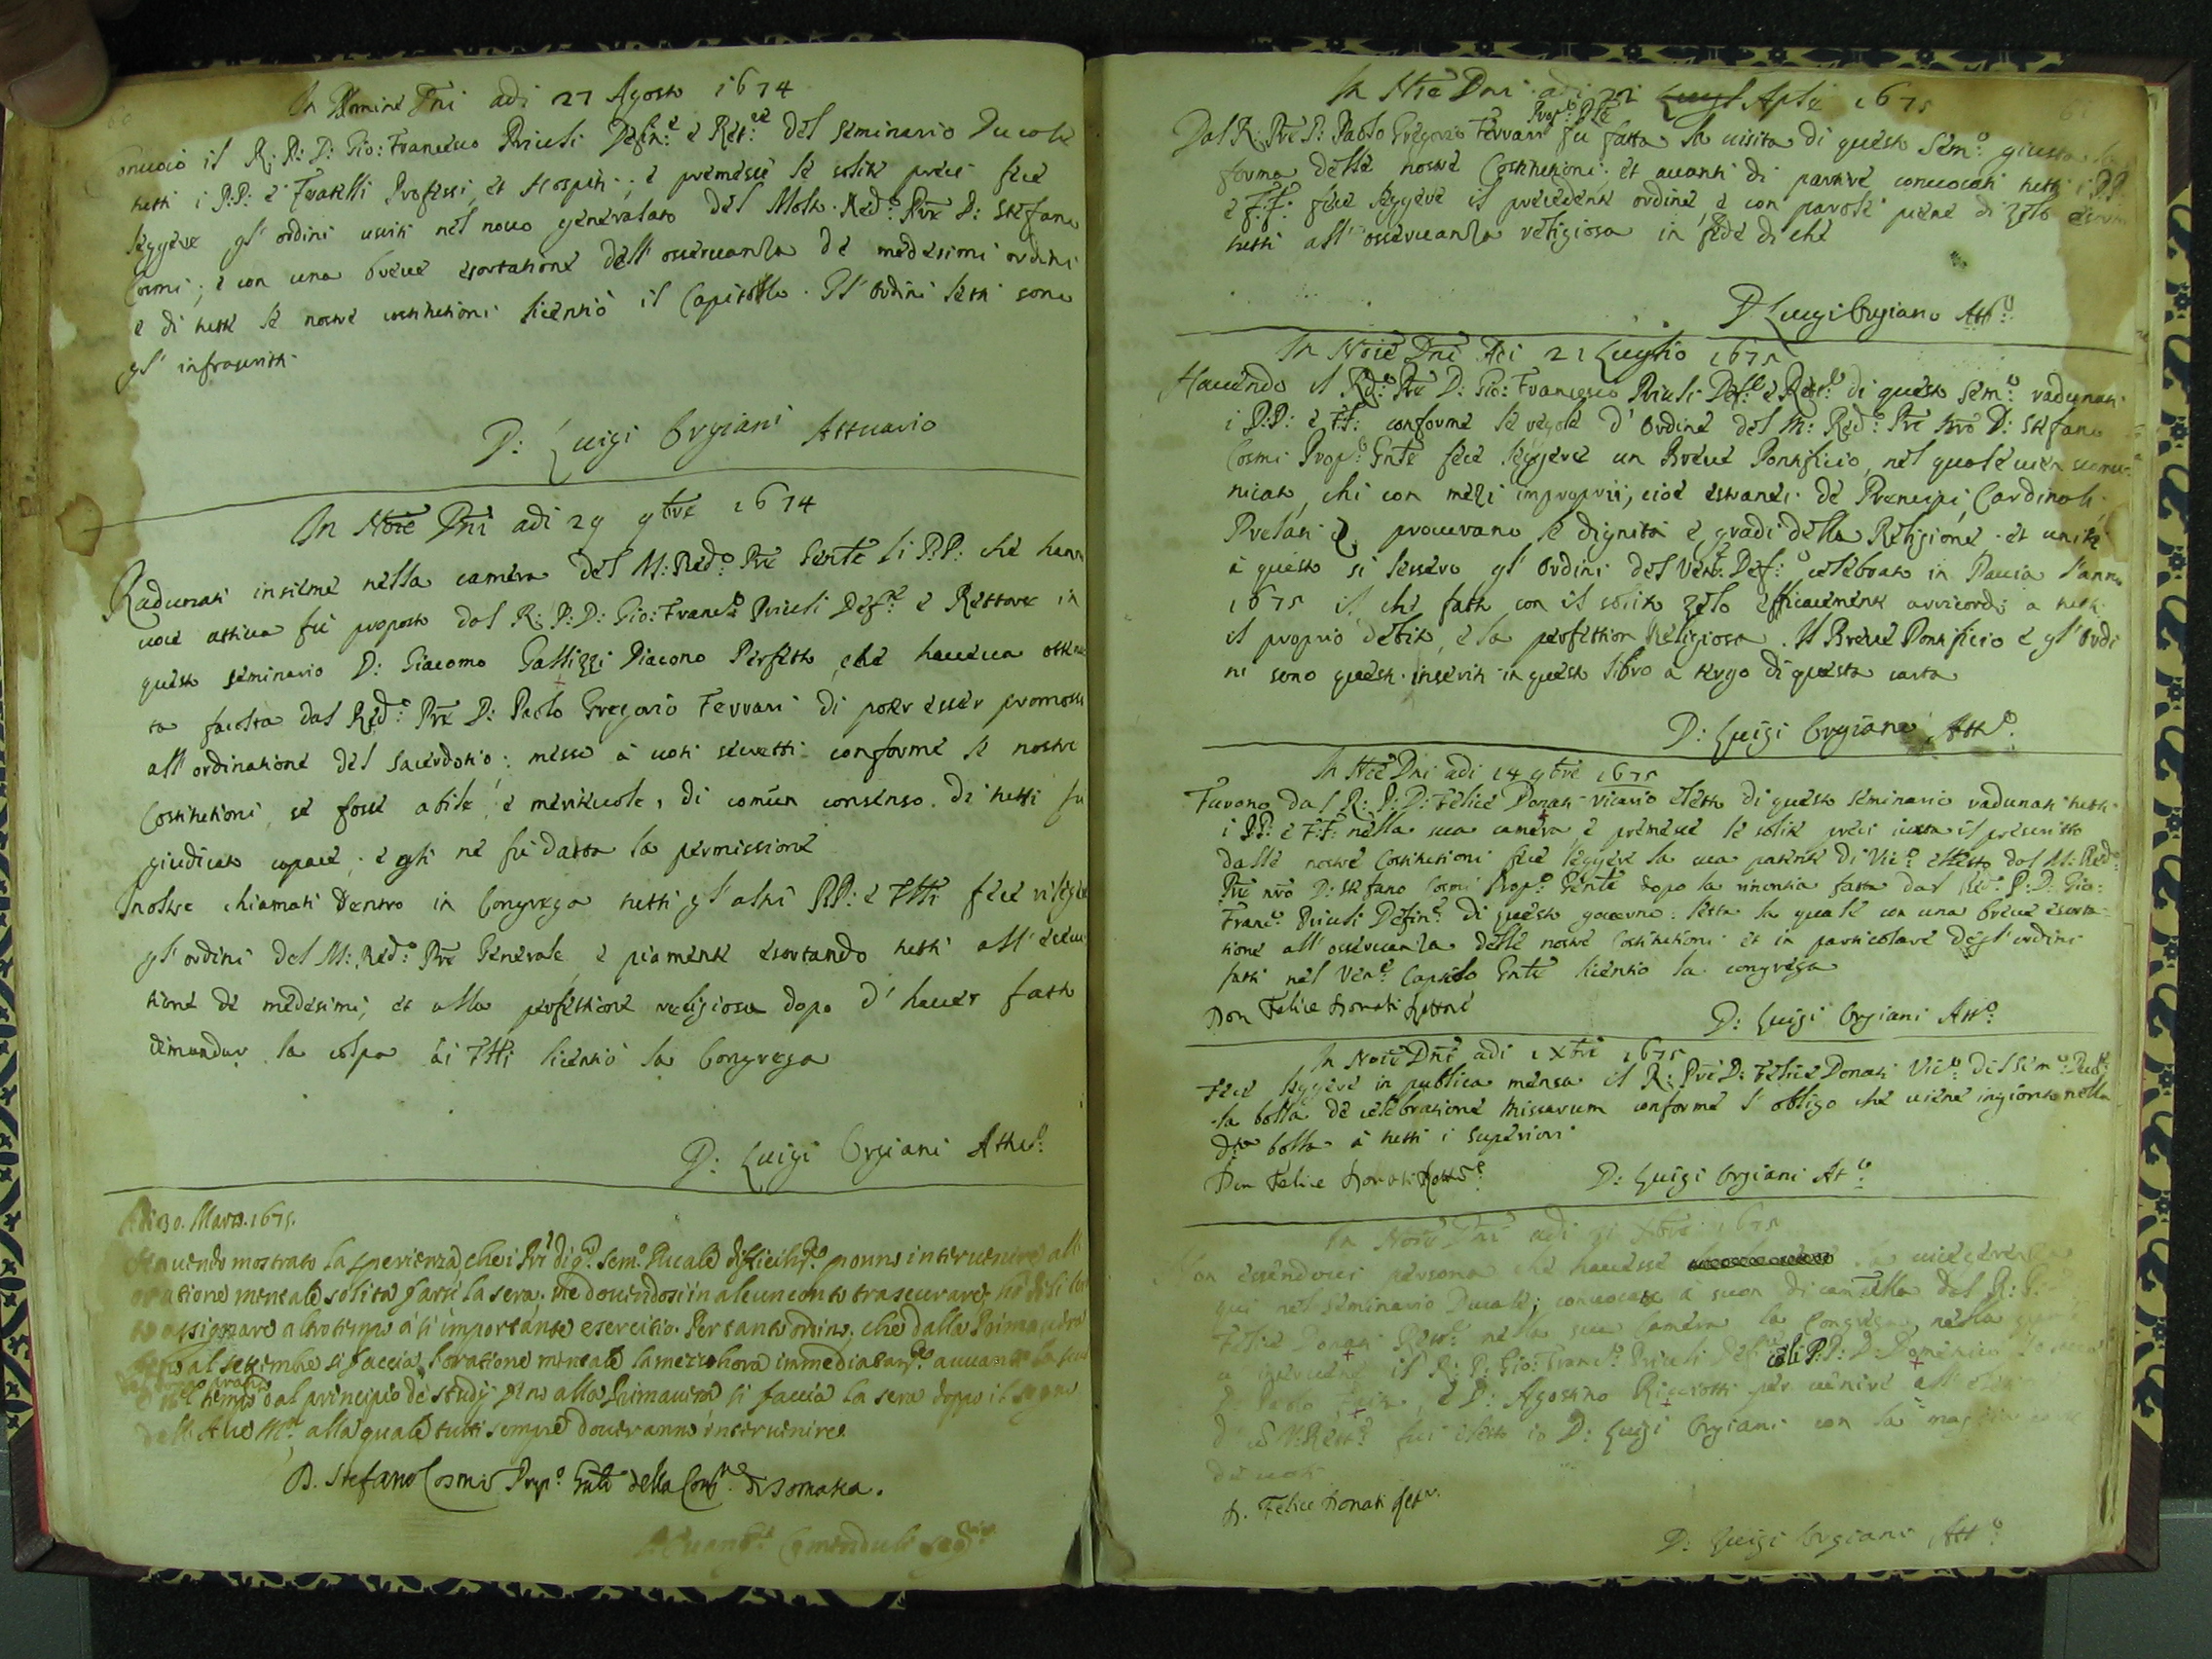 In Nomine Dni adi 27 Agosto 1674
onuocò il R: P: D: Gio: Francesco Priuli Defin:re e Ret:re del seminario Ducale
tutti i P:P: e Fratelli Professi, et Hospiti; e premesse le solite preci fece
leggere gl' ordini usciti nel nouo generalato del Molto Red:o Pre D: Stefano
Cosmi; e con una breue esortatione dell' osseruanza de medesimi ordini
e di tutte le nostre costitutioni licentiò il Capitollo. Gl' ordini letti sono
gl' infrascritti
D: Luigi Orgiani Attuario
In Noie Dni adi 29 9bre 1674
Radunati insieme nella camera del M: Red:o Pre Gente li P:P: che hanno
uoce attiua fù proposto dal R: P: D: Gio: Franc:o Priuli Def:re e Rettore in
questo seminario D: Giacomo Gallizzi Diacono Perfetto, che haueua ottenu
ta facolta dal Red:o Pre D: Paolo Gregorio Ferrari di poter esser promosso
all' ordinatione del sacerdotio: messo à uoti secretti conforme le nostre
Costitutioni, se fosse abile, e meriteuole, di comun consenso di tutti fu
giudicato capace; e gli ne fù data la permissione
Inoltre chiamati dentro in Congrega tutti gl' altri P:P: e Flli fece rilegere
gl' ordini del M: Red:o Pre Generale, e piamente esortando tutti all' esecu
tione de medesimi, et alla perfettione religiosa dopo d' hauer fatto
dimandar la colpa ai Flli licentiò la Congrega
D: Luigi Orgiani Attu:o
Adi 30. Marzo. 1675.
Hauendo mostrato la sperienza, che i Pri di q:o Sem:o Ducale difficilm:te ponno interuenire all
oratione mentale solita farsi la sera; ne douendosi in alcun conto trascurare,
assignare altro tempo à si importante esercitio. Pertanto ordino, che dalla Primauera
al settembre si faccia l'oratione mentale la mezz hora immediatam:te auuanti la
pranso
e nel tempo dal principio de studij fino alla Primauera si faccia la sera doppo il segno
dell' Aue M:a alla quale tutti sempre doueranno interuenire
D. Stefano Cosmi Prep:o Gnle della Cong:ne di Somasca.
In Noie Dni adi 22 Aple 1675
Prop:o Ple
Dal R: Pre D: Paolo Gregorio Ferrari fu fatta la uisita di questo Sem:o giusta la
forma delle nostre Costitutioni; et auanti di partire conuocati tutti i P:P:
e F:F: fece leggere il precedente ordine, e con parole piene di zelo
tutti all' osseruanza religiosa in fede di che
D Luigi Orgiano Att:o
In Noie Dni Adi 21 Luglio 1675
Hauendo il Rd:o Pre D: Gio: Francesco Priuli Def:re e Ret:re di questo Sem:o radunati
i P:P: e FF: conforme le regole d' Ordine del M: Red:o Pre nro D: Stefano
Cosmi Prop:o Gnle fece leggere un Breue Pontificio, nel quale uien scomu-
nicato, chi con mezi improprii, cioè estranei de Prencipi, Cardinali,
Prelati procurano le dignità e gradi della Religione. et unite
à questo si lessero gl' Ordini del Ven: Def:o celebrato in Pauia l'anno
1675 il che fatto con il solito zelo efficacemente arricordò a tutti
il proprio debito, e la perfettion Religiosa. Il Breue Pontificio e gl' Ordi
ni sono questi inseriti in questo libro a tergo di questa carta
D: Luigi Orgiano Att:o
In Noie Dni adi 14 9bre 1675
Furono dal R: P: D: Felice Donati vicario eletto di questo seminario radunati tutti
i P:P: e F:F: nella sua camera e premesse le solite preci iuxta il prescritto
dalle nostre Costitutioni fece leggere la sua patente di Vic:o eletto dal M: Red:o
Pre nro D: Stefano Cosmi Prop:o Gente dopo la rinontia fatta dal Red:o P: D: Gio:
Franc:o Priuli Defin:re di questo gouerno: letta la quale con una breue esorta-
tione all' osseruanza delle nostre Costitutioni et in particolare degl' ordini
fatti nel Ven:e Capitolo Gnle licentio la congrega
Don Felice Donati Rettore
D: Luigi Orgiani Att:o
In Noie Dni adi 1 Xbre 1675
Fece leggere in publica mensa il R: Pre D: Felice Donati Vic:o del Sem:o Duc:le
la bolla de celebratione Missarum conforme l' obligo che uiene ingionto nella
dta bolla à tutti i superiori
Don Felice Donati Rettore
D: Luigi Orgiani At:o
In Noie Dni adi 31 Xbre 1675
Non essendoui persona che hauesse la uicegerenza
qui nel seminario Ducale; conuocata a suon di campanella dal R: P:
Felice Donati Rett:re nella sua Camera la Congrega, nella
interuenne il R: P: Gio: Franc:o Priuli Def:re e li P:P: D: Domenico
D: Paolo, e D: Agostino Ricciotti per uenire all'
fui eletto io D: Luigi Orgiani con la maggior
de uoti
D. Felice Donati Rett:re
D: Luigi Orgiani Att:o